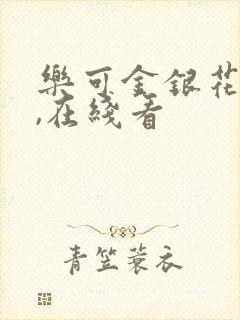 樂可金銀花
,在綫看
青笠蓑衣